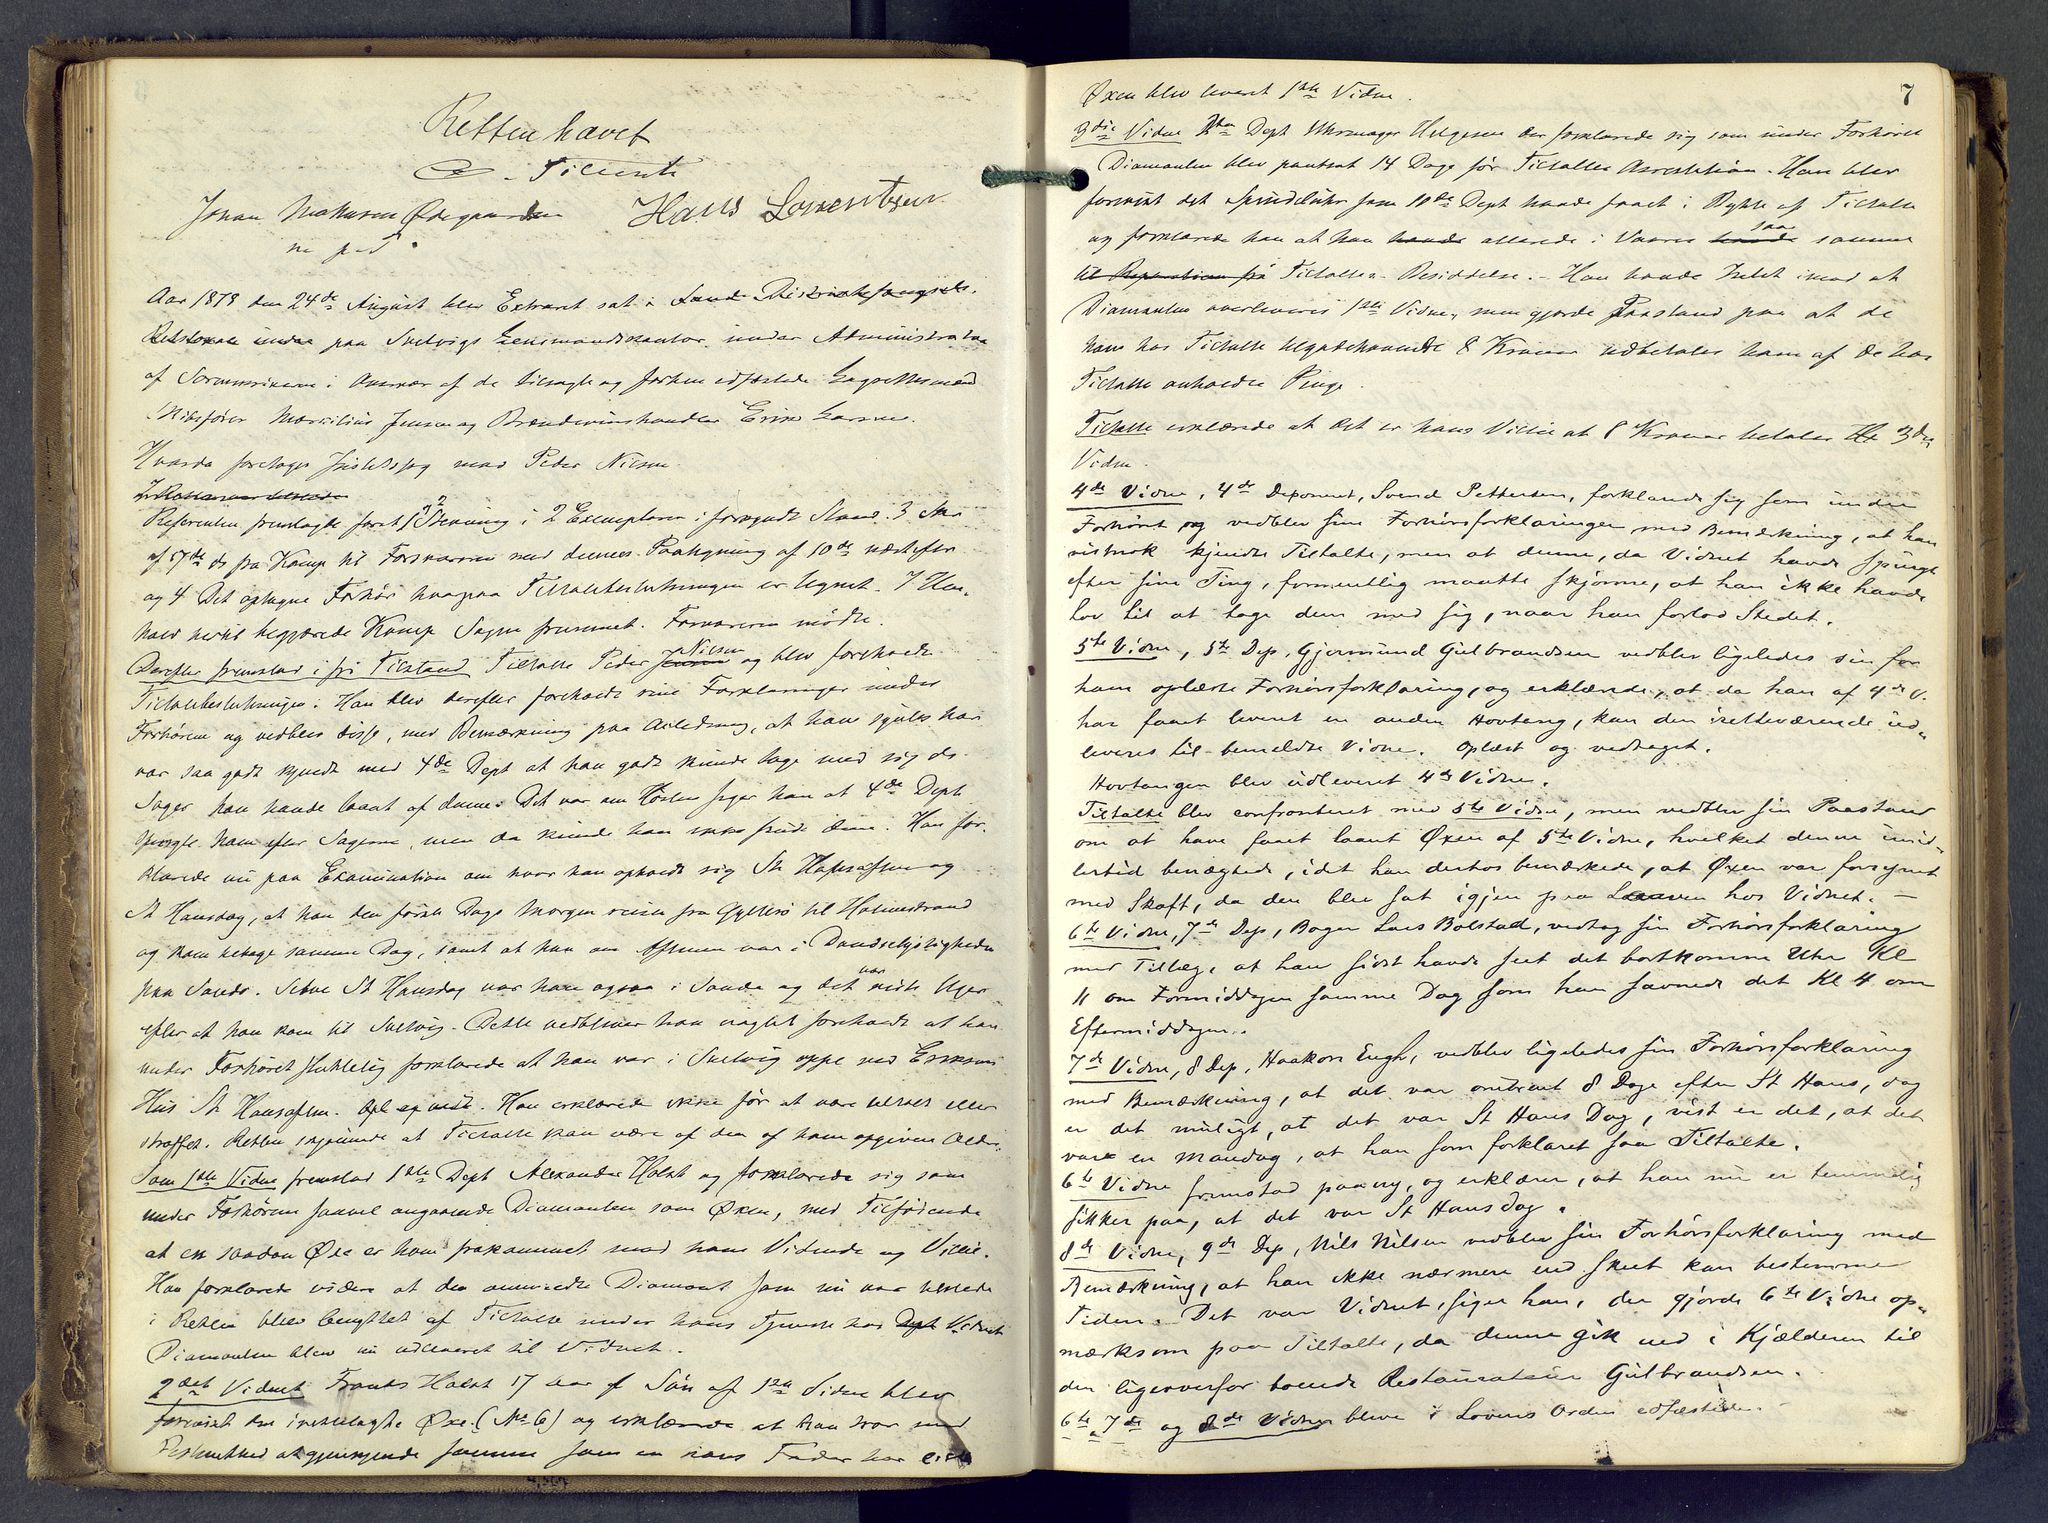 Retten hævet
Johan Mathisen Ødegaarden Hans Lorentzen
m p P
Aar 1878 den 24de August blev Extraret sat i Sande Distriktsfængsels
paa Svelvigs Lensmandskontor under Administration
af Sorenskriveren i Overvær af de tilsagte og forhen edfæstede Lagrettesmænd
Skibsfører Marcilius Jensen og Brændevinshandler Erik Larsen.
Hvorda foretoges Justitssag mod Peder Nilsen
Referenten fremlagde først 1, 2 Stevning i 2 Exemplarer i forkyndt Stand. 3 Skr
af 17de ds fra Kamp til Forsvareren med dennes Paategning af 10de næstefter
og 4 Det optagne Forhør hvorpaa Tiltalebeslutningen er tegnet. I Hen-
hold hertil begjærede Kamp Sagen fremmet. Forsvareren mødte.
Derefter fremstod i fri Tilstand Tiltalte Peder Jensen Nilsen og blev foreholdt
Tiltalebeslutningen. Han blev derefter foreholdt sine Forklaringer under
Forhørene og vedblev disse, med Bemærkning paa Anledning, at han syntes han
var saa godt kjendt med 4de Dept at han godt kunde tage med sig de
Sager han havde laant af denne. Det var om Høsten siger han at 4de Dept
spurgte ham efter Sagerne, men da kunde han ikke finde dem. Han for-
klarede nu paa Examination om hvor han opholdt sig St Hansaften og
St Hansdag, at han den første Dags Morgen reiste fra til Holmestrand
og kom tilbage samme Dag, samt at han om Aftenen var i Dandselystigheder
paa Sande. Selve St Hansdag var han ogsaa i Sande og det var siste Uger
efter at han kom til Svelvig. Dette vedbliver han uagtet foreholdt at han
under Forhøret forklarede at han var i Svelvig oppe ved Eriksens
Hus St Hansaften. Opl og vedt. Han erklærede ikke før at være tiltalt eller
straffet. Retten skjønnede at Tiltalte kan være af den af ham opgivne Alder.
Som 1ste Vidne fremstod 1ste Dept Alexander Holst og forklarede sig som
under Forhøren saavel angaaende Diamanten som Øxen, med Tilføiende
at en saadan Øxe er ham frakommet mod hans Vidende og Villie.
Han forklarede videre at den omvundte Diamant som nu var tilstede
i Retten blev benyttet af Tiltalte under hans Tjeneste hos Dept Vidnet
Diamanten blev nu udleveret til Vidnet.
2det Vidnet Frants Holst 17 Aar g Søn af 1ste Vidne blev
forevist den fremlagte Øxe (No 6) og erklærede at han var med
Bestemthed at gjenkjende samme som en hans Fader har eiet
7
Øxen blev leveret 1ste Vidne.
3die Vidne Dept Uhrmager Helgesen der forklarede sig som under Forhøret
Diamanten blev pantsat 14 Dage før Tiltaltes Arrestation. Han blev
forevist det Spindeluhr som 10de Dept havde faaet i Bytte af Tiltalte
og forklarede han at han havde allerede i Vaares havde saa samme
til Reparation fra Tiltaltes Besiddelse. Han havde Intet imod at
Diamanten overleveres 1ste Vidne, men gjorde Paastand paa at de
hans hos Tiltalte tilgodehavende 8 Kroner udbetales ham af de hos
Tiltalte anholdte Penge.
Tiltalte erklærede at det er hans Villie at 8 Kroner betales 3die
Vidne.
4de Vidne, 4de Deponent, Svend Pettersen, forklarede sig som under
Forhøret og vedblev sine Forhørsforklaringer med Bemærkning, at han
vistnok kjendte Tiltalte, men at denne, da Vidnet havde spurgt
efter sine Ting, formentlig maatte skjønne, at han ikke havde
Lov til at tage dem med sig, naar han forlod Stedet.
5te Vidne, 5te Dep, Gjermund Gulbrandsen vedblev ligeledes sin for
ham oplæste Forhørsforklaring, og erklærede, at da han af 4de V.
har faaet leveret en anden Hovtang, kan den iretteværende ud-
leveres til bemeldte Vidne. Oplæst og vedtaget.
Hovtangen blev udleveret 4de Vidne.
Tiltalte blev confronteret med 5te Vidne, men vedblev sin Paastand
om at have faaet laant Øxen af 5te Vidne, hvilket denne imid-
lertid benægtede, idet han derhos bemærkede, at Øxen var forsynet
med Skaft, da den blev sat igjen paa Laaven hos Vidnet. —
6te Vidne, 7de Dep, Bager Lars Bolstad, vedtog sin Forhørsforklaring
med Tillæg, at han sidst havde seet det bortkomne Uhr Kl
11 om Formiddagen samme Dag som han savnede det Kl 4 om
Eftermiddagen.
7de Vidne, 8 Dep, Haakon Engh, vedblev ligeledes sin Forhørsforklaring
med Bemærkning, at det var omtrent 8 Dage efter St Hans, dog
er det muligt, at det var St Hans Dag, vist er det, at det
var en Mandag, at han som forklaret saa Tiltalte.
6te Vidne fremstod paany, og erklærer, at han nu er temmelig
sikker paa, at det var St Hansdag.
8de Vidne, 9de Dep, Nils Nilsen vedblev sin Forhørsforklaring med
Bemærkning, at han ikke nærmere end skeet kan bestemme
Tiden. Det var Vidnet, siger han, der gjorde 6te Vidne op-
mærksom paa Tiltalte, da denne gik ned i Kjælderen til
den ligeoverfor boende Restauratør Gulbrandsen.
6te, 7de og 8de Vidner bleve i Lovens Orden edfæstede.